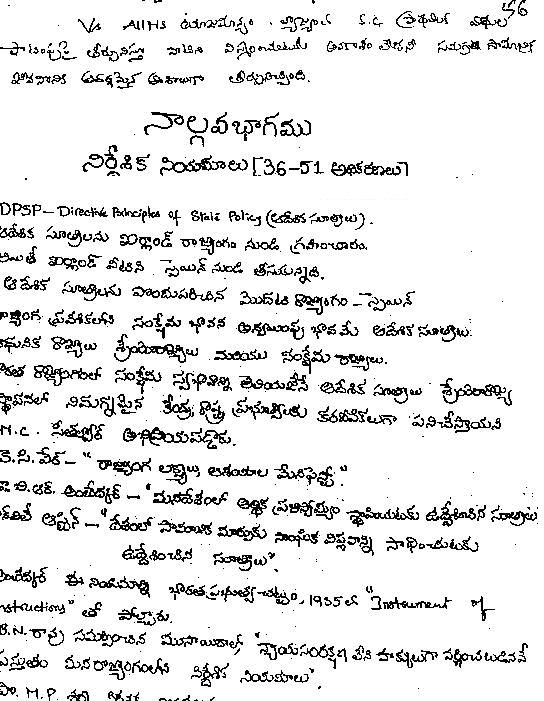 56
V/s AIIMS ఉదాహరణం. S.C
పాటింపుపై తీర్పునిస్తూ వాటిని అవకాశం లేదని సమగ్రత సామాజిక
తీర్పునిచ్చింది.
నాల్గవభాగము
నిర్దేశిక నియమాలు [36-51 అధికరణలు]
DPSP – Directive Principles of State Policy (ఆదేశిక సూత్రాలు).
ఆదేశిక సూత్రాలను ఐర్లాండ్ రాజ్యాంగం నుండి గ్రహించారు.
అయితే ఐర్లాండ్ వీటిని స్పెయిన్ నుండి తీసుకున్నది.
ఆదేశిక సూత్రాలను పొందుపరిచిన మొదటి రాజ్యాంగం – స్పెయిన్
రాజ్యాంగ ప్రవేశికలోని సంక్షేమ భావన భావమే ఆదేశిక సూత్రాలు.
ఆధునిక రాజ్యాలు శ్రేయోరాజ్యాలు మరియు సంక్షేమ రాజ్యాలు.
భారత రాజ్యాంగంలో సంక్షేమ స్వభావాన్ని తెలియజేసే ఆదేశిక సూత్రాలు శ్రేయోరాజ్య
స్థాపనలో నిమగ్నమైన కేంద్ర, రాష్ట్ర ప్రభుత్వాలకు కరదీపికలుగా పనిచేస్తాయని
M.C. సెతల్వాడ్ అభిప్రాయపడ్డారు.
కె.సి.వేర్ – "రాజ్యాంగ లక్ష్యాలు, ఆశయాల మేనిఫెస్టో".
బి.ఆర్. అంబేద్కర్ – "మనదేశంలో ఆర్థిక ప్రజాస్వామ్యం స్థాపించుటకు ఉద్దేశించిన సూత్రాలు
ఆస్టిన్ – "దేశంలో సామాజిక మార్పుకు సాంఘిక విప్లవాన్ని సాధించుటకు
ఉద్దేశించిన సూత్రాలు".
అంబేద్కర్ ఈ నియమాలన్ని భారత ప్రభుత్వ చట్టం, 1935 లో "Instrument of
Instructions" తో పోల్చారు.
B.N. రావు సమర్పించిన ముసాయిదాలో, "న్యాయసంరక్షణ లేని హక్కులుగా వర్ణించబడినవే
ప్రస్తుతం మన రాజ్యాంగంలోని నిర్దేశిక నియమాలు".
M.P.